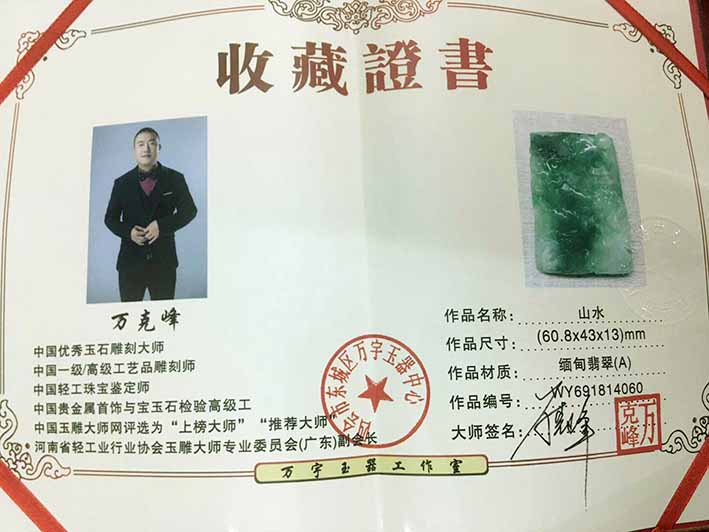 收藏證書
万克峰
中国优秀玉石雕刻大师
中国一级/高级工艺品雕刻师
中国轻工珠宝鉴定师
中国贵金属首饰与宝玉石检验高级工
中国玉雕大师网评选为“上榜大师”“推荐大师”
河南省轻工业行业协会玉雕大师专业委员会(广东)副会长
作品名称: 山水
作品尺寸: (60.8x43x13)mm
作品材质: 缅甸翡翠(A)
作品编号: WY691814060
大师签名:
万克峰
四会市东城区万宇玉器中心
万宇玉器工作室